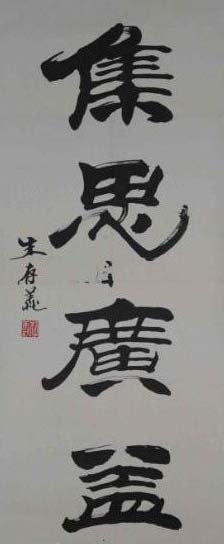 集思廣益
朱存義